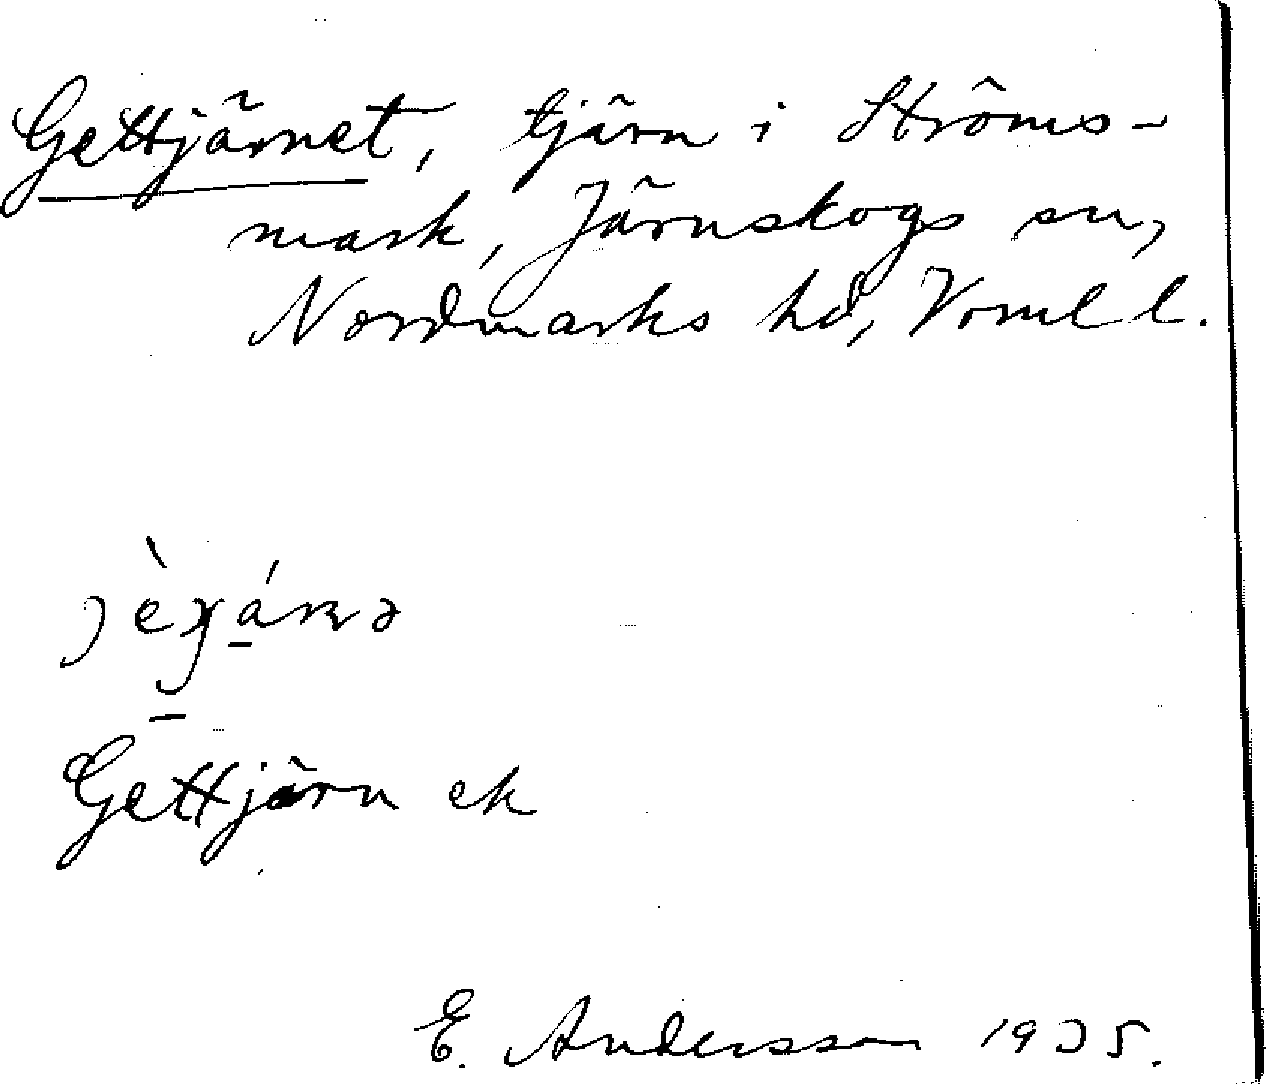 Gettjärnet, tjärn i Ströms-
mark, Järnskogs sn,
Nordmarks hd, Verml l.
Gettjärn ek
E. Andersson 1935.